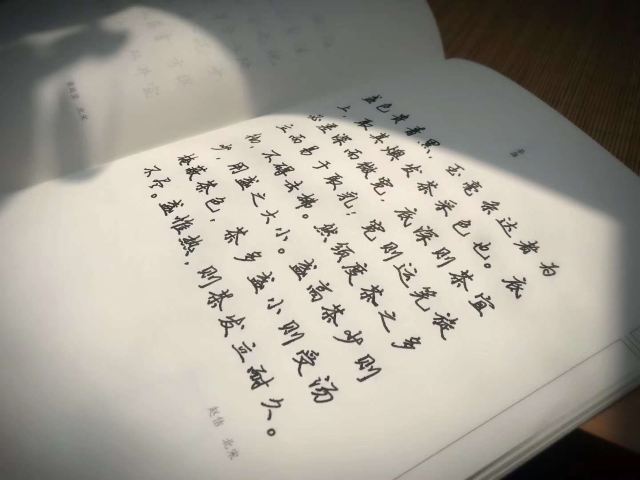 盏色贵青黑，玉毫条达者为
上，取其燠发茶采色也。底
必差深而微宽，底深则茶宜
立而易于取乳；宽则运筅旋
彻，不碍击拂。然须度茶之多
少，用盏之大小。盏高茶少则
掩蔽茶色，茶多盏小则受汤
不尽。盏惟热，则茶发立耐久。
赵佶 北宋